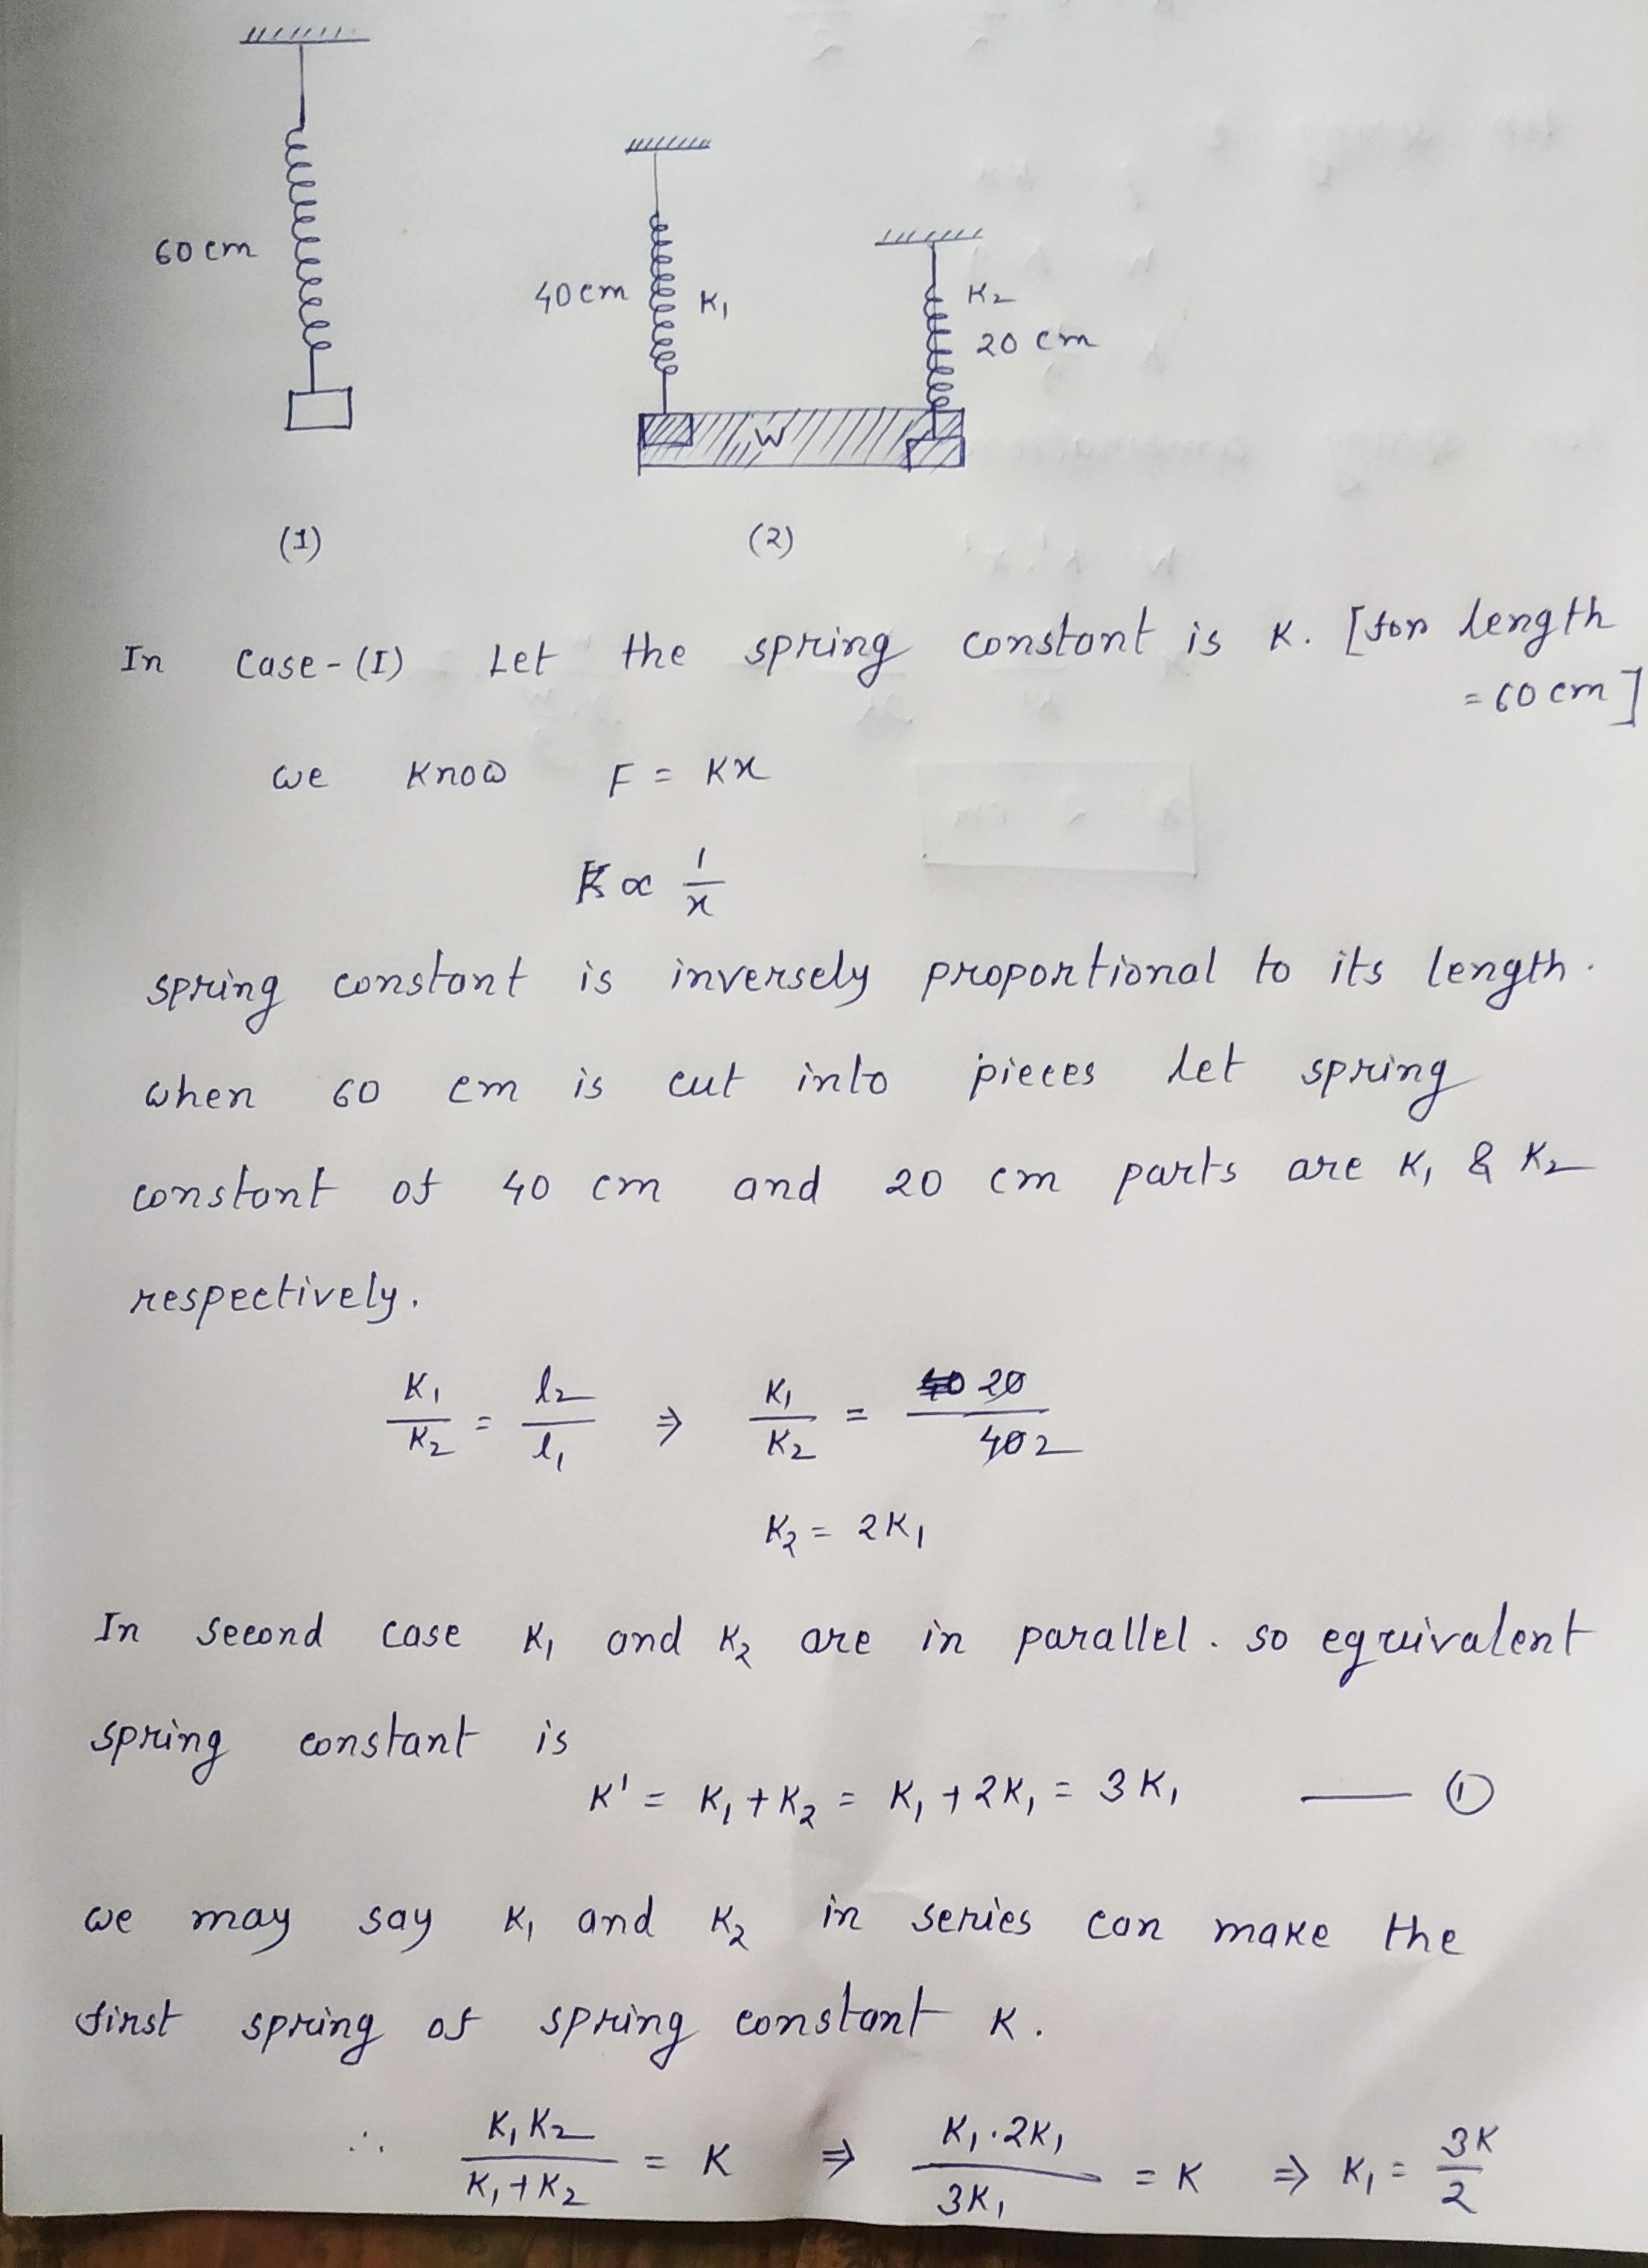 60 cm
40 cm K₁
K₂
20 cm
W
(1) (2)
In case-(I) Let the spring constant is K. [for length
= 60 cm]
we know F = Kx
K ∝ 1/x
spring constant is inversely proportional to its length.
when 60 cm is cut into pieces let spring
constant of 40 cm and 20 cm parts are K₁ & K₂
respectively.
K₁/K₂ = l₂/l₁ ⇒ K₁/K₂ = 20/40 2
K₂ = 2K₁
In second case K₁ and K₂ are in parallel. so equivalent
spring constant is
K' = K₁ + K₂ = K₁ + 2K₁ = 3K₁ — ①
we may say K₁ and K₂ in series can make the
first spring of spring constant K.
∴ K₁K₂/K₁+K₂ = K ⇒ K₁·2K₁/3K₁ = K ⇒ K₁ = 3K/2